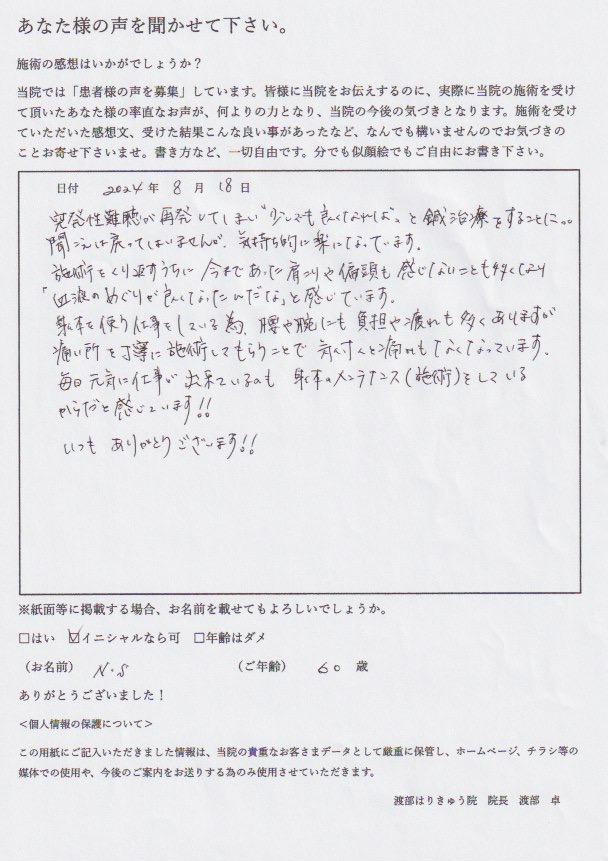 あなた様の声を聞かせて下さい。
施術の感想はいかがでしょうか？
当院では「患者様の声を募集」しています。皆様に当院をお伝えするのに、実際に当院の施術を受け
て頂いたあなた様の率直なお声が、何よりの力となり、当院の今後の気づきとなります。施術を受け
ていただいた感想文、受けた結果こんな良い事があったなど、なんでも構いませんのでお気づきの
ことお寄せ下さいませ。書き方など、一切自由です。分でも似顔絵でもご自由にお書き下さい。
日付 2024年 8月 18日
突発性難聴が再発してしまい"少しでも良くなれば"と鍼治療をすることに。。
聞こえは戻ってはいませんが、気持ち的に楽になっています。
施術をくり返すうちに今まであった肩こりや偏頭も感じないことも多くなり
「血液のめぐりが良くなったんだな」と感じています。
身体を使う仕事をしている為、腰や腕にも負担や疲れも多くありますが
痛い所を丁寧に施術してもらうことで気付くと痛みもなくなっています。
毎日元気に仕事が出来ているのも 身体のメンテナンス(施術)をしている
からだと感じています!!
いつも ありがとうございます!!
※紙面等に掲載する場合、お名前を載せてもよろしいでしょうか。
□はい ☑イニシャルなら可 □年齢はダメ
（お名前） N.S （ご年齢） 60 歳
ありがとうございました！
＜個人情報の保護について＞
この用紙にご記入いただきました情報は、当院の貴重なお客さまデータとして厳重に保管し、ホームページ、チラシ等の
媒体での使用や、今後のご案内をお送りする為のみ使用させていただきます。
渡部はりきゅう院 院長 渡部 卓